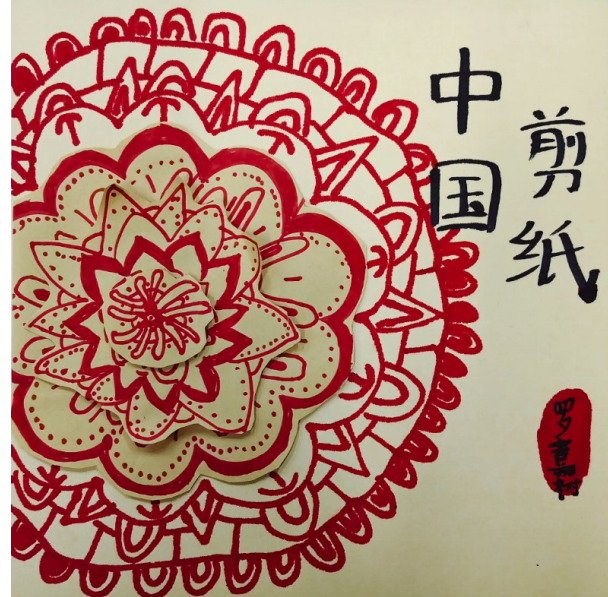 中国
剪纸